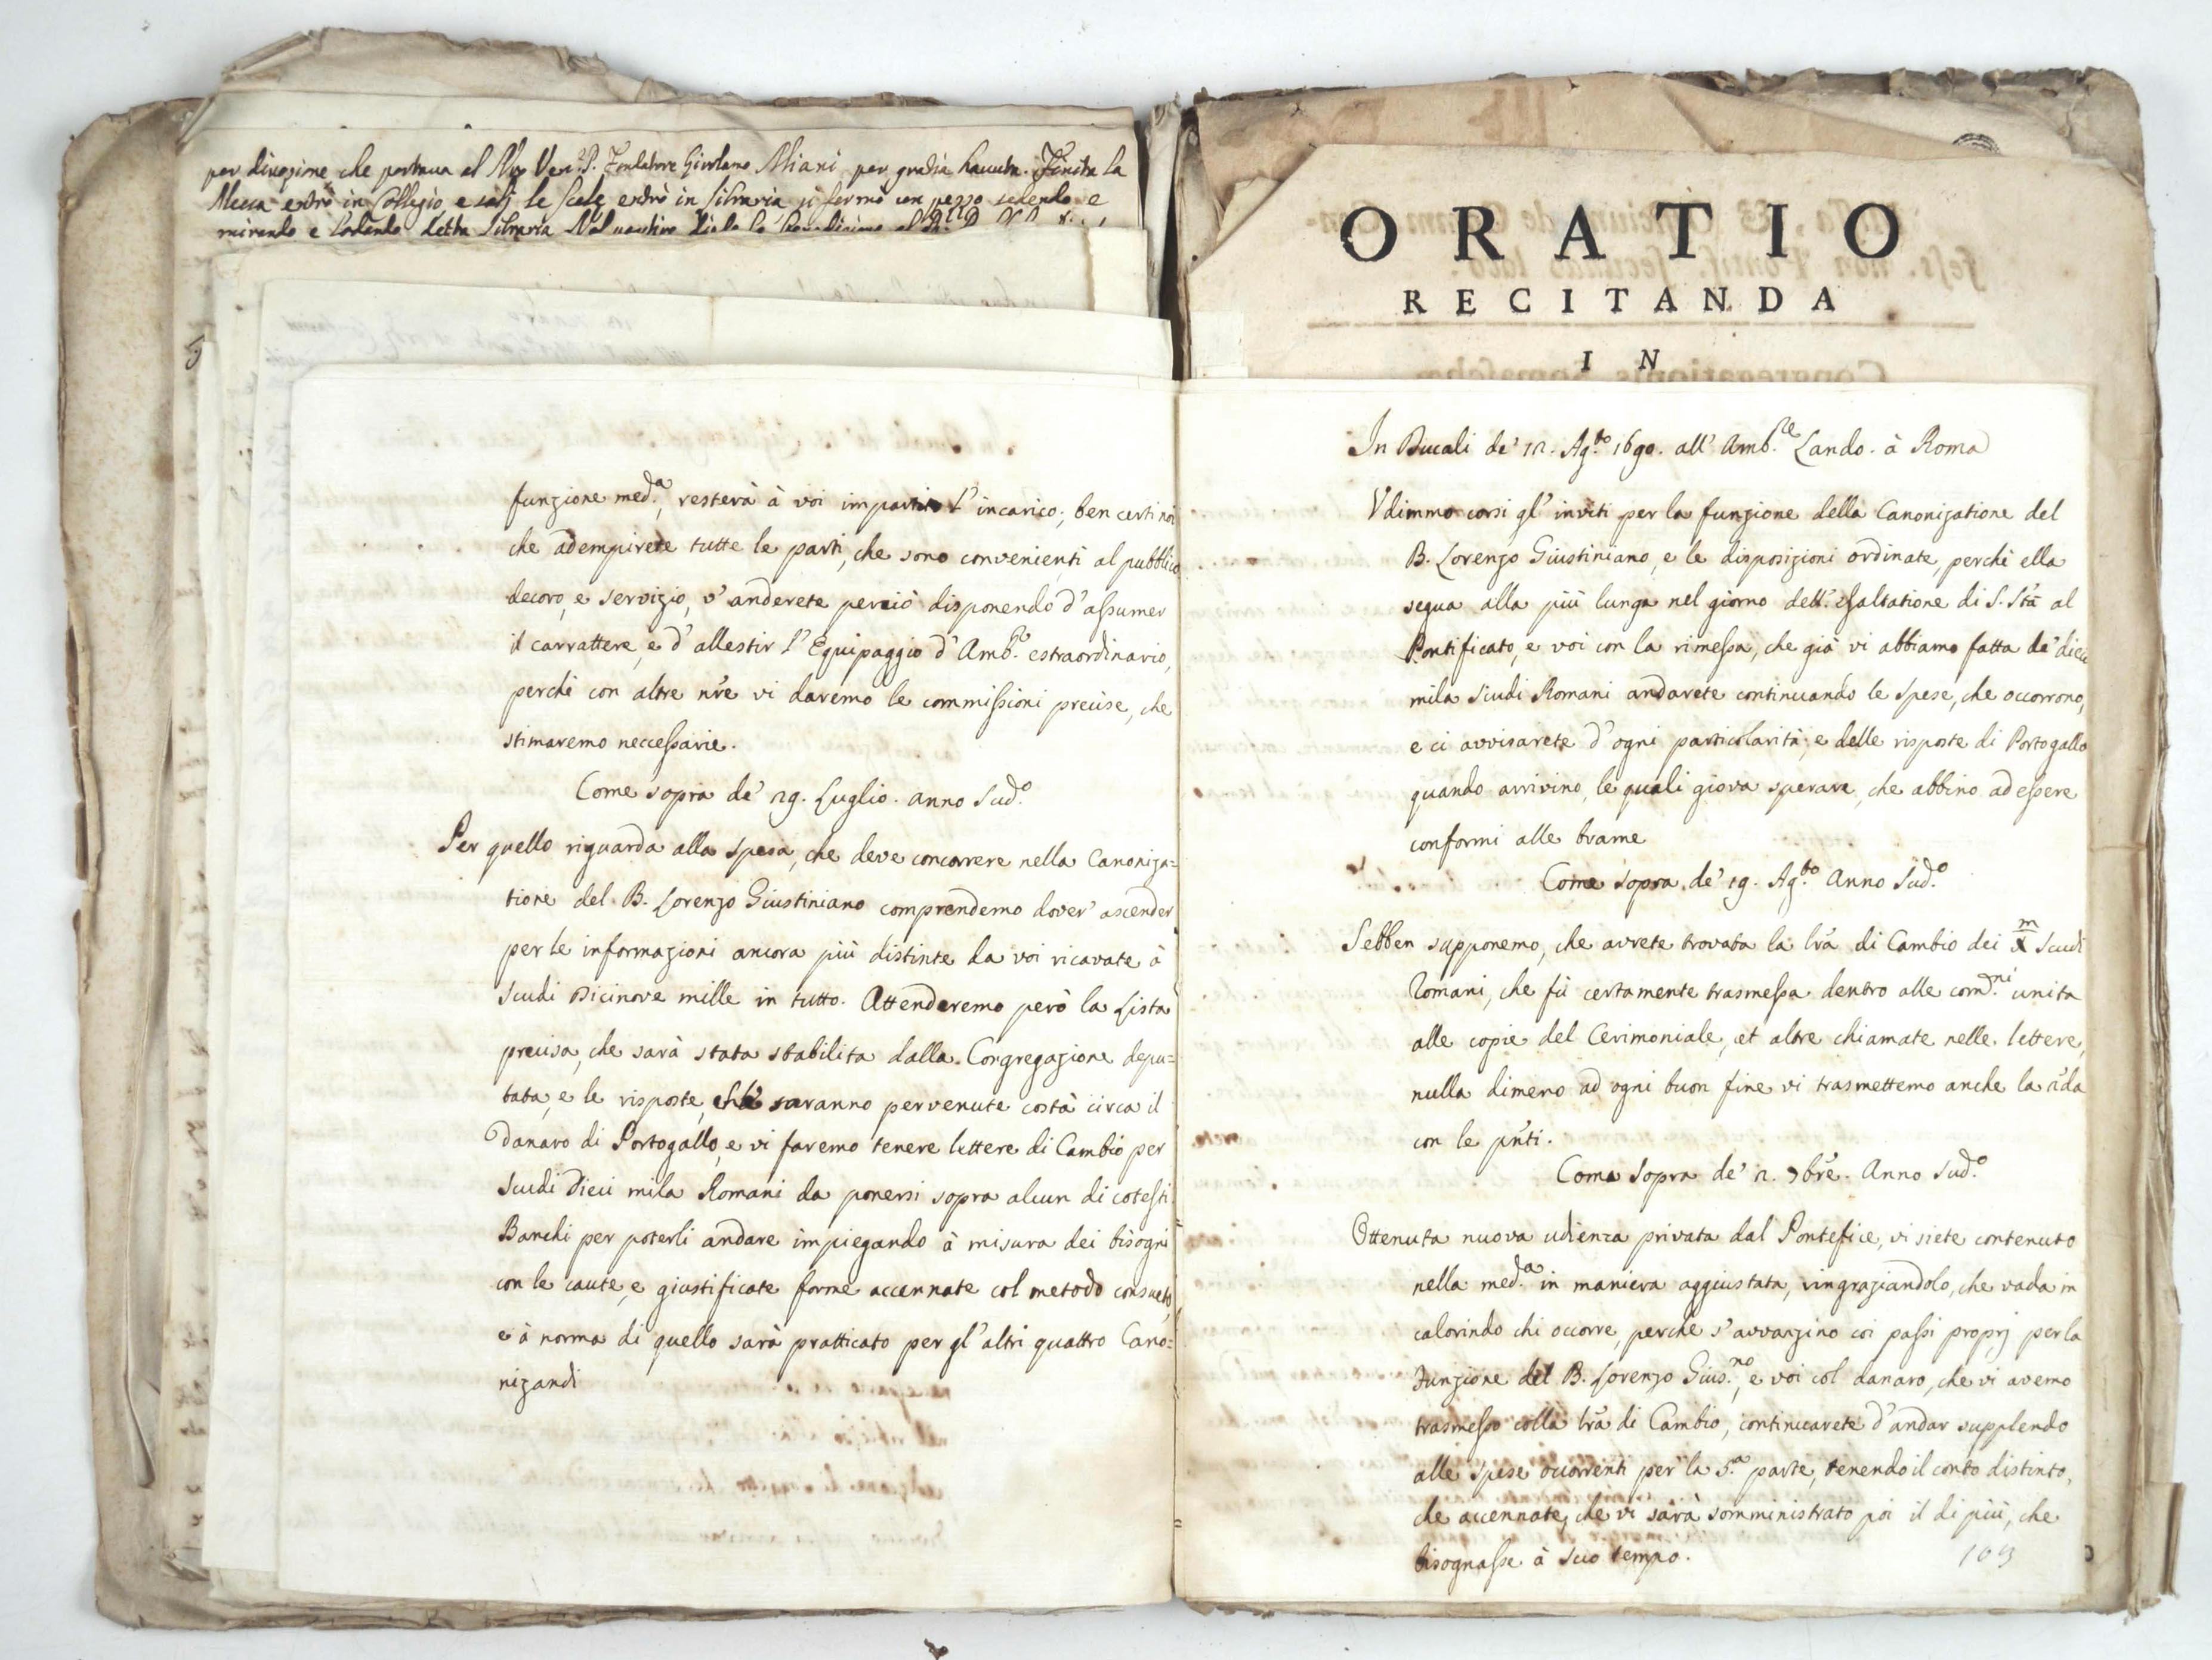 per divozione che portava al Ven. P. Fondatore Girolamo Miani per gratia havuta. Finita la
Messa entrò in Collegio, e salì le scale entrò in libraria si fermò un pezzo sedendo e
mirando e lodando detta libraria
funzione med.a, resterà à voi impartito l'incarico; ben certi noi
che adempirete tutte le parti, che sono convenienti al pubblico
decoro, e servizio, v'anderete perciò disponendo d'assumer
il carrattere, e d'allestir l'Equipaggio d'Amb.r estraordinario,
perchè con altre nr̃e vi daremo le commissioni precise, che
stimaremo neccessarie.
Come sopra de' 29. Luglio. anno Sud.o
Per quello riguarda alla spesa, che deve concorrere nella Canoniza=
tione del B. Lorenzo Giustiniano comprendemo dover' ascender
per le informazioni ancora più distinte da voi ricavate à
scudi Dicinove mille in tutto. Attenderemo però la Lista
precisa, che sarà stata stabilita dalla Congregazione depu=
tata, e le risposte, che saranno pervenute costà circa il
Danaro di Portogallo, e vi faremo tenere lettere di Cambio per
scudi Dieci mila Romani da ponersi sopra alcun di cotesti
Banchi per poterli andare impiegando à misura dei bisogni
con le caute, e giustificate forme accennate col metodo consueto,
e à norma di quello sarà pratticato per gl'altri quattro Cano=
nizandi
ORATIO
RECITANDA
IN
In Ducali de' 12. Ag.to 1690. all' Amb.re Lando. à Roma
Udimmo corsi gl'inviti per la funzione della Canonizatione del
B. Lorenzo Giustiniano, e le disposizioni ordinate, perchè ella
segua alla più lunga nel giorno dell'esaltatione di S. Stà al
Pontificato, e voi con la rimessa, che già vi abbiamo fatta de' dieci
mila Scudi Romani andarete continuando le spese, che occorrono,
e ci avvisarete d'ogni particolarità, e delle risposte di Portogallo
quando arrivino, le quali giova sperare, che abbino ad essere
conformi alle brame
Come sopra de' 19. Ag.to Anno Sud.o
Sebben supponemo, che avrete trovata la lr̃a di Cambio dei X m Scudi
Romani, che fù certamente trasmessa dentro alle com.ni unita
alle copie del Cerimoniale, et altre chiamate nelle lettere,
nulla dimeno ad ogni buon fine vi trasmettemo anche la 2.da
con le pñti.
Come sopra de' 2. 7bre. Anno Sud.o
Ottenuta nuova udienza privata dal Pontefice, vi siete contenuto
nella med.a in maniera aggiustata, ringraziandolo, che vada in
calorindo chi occorre, perchè s'avvanzino coi passi proprj per la
Funzione del B. Lorenzo Gius.no, e voi col danaro, che vi avemo
trasmesso colla lr̃a di Cambio, continuarete d'andar supplendo
alle spese occorrenti per la 5.a parte, tenendo il conto distinto,
che accennate, che vi sarà somministrato poi il di più, che
bisognasse à suo tempo.
109